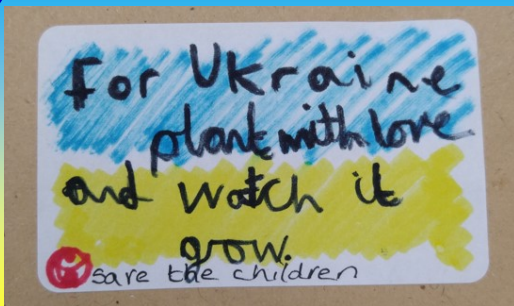 For Ukraine
plant with love
and watch it
grow.
save the children